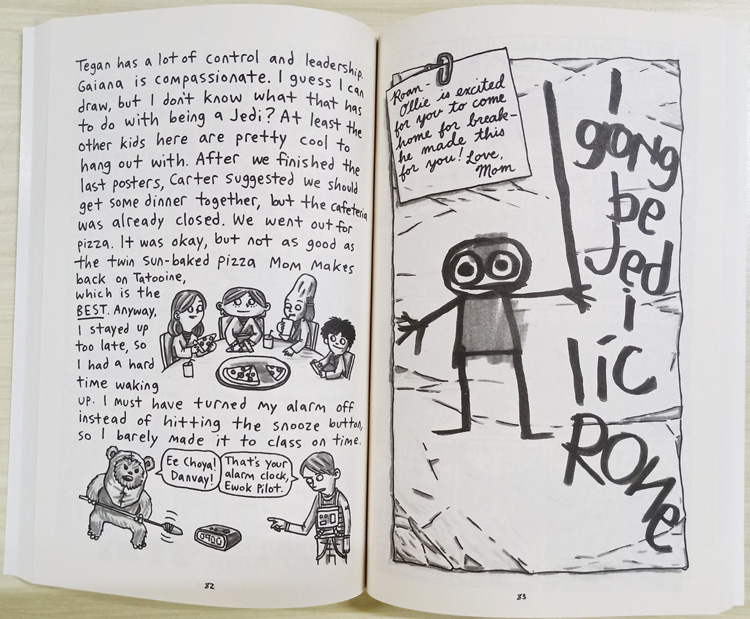 Tegan has a lot of control and leadership.
Gaiana is compassionate. I guess I can
draw, but I don't know what that has
to do with being a Jedi? At least the
other kids here are pretty cool to
hang out with. After we finished the
last posters, Carter suggested we should
get some dinner together, but the cafeteria
was already closed. We went out for
pizza. It was okay, but not as good as
the twin sun-baked pizza Mom makes
back on Tatooine,
which is the
BEST. Anyway,
I stayed up
too late, so
I had a hard
time waking
up. I must have turned my alarm off
instead of hitting the snooze button,
so I barely made it to class on time.
Ee Choya!
Danvay!
That's your
alarm clock,
Ewok Pilot.
0900
82
Roan-
Ollie is excited
for you to come
home for break-
he made this
for you! Love,
Mom
I
gong
be
Jed
i
lic
RONe
83